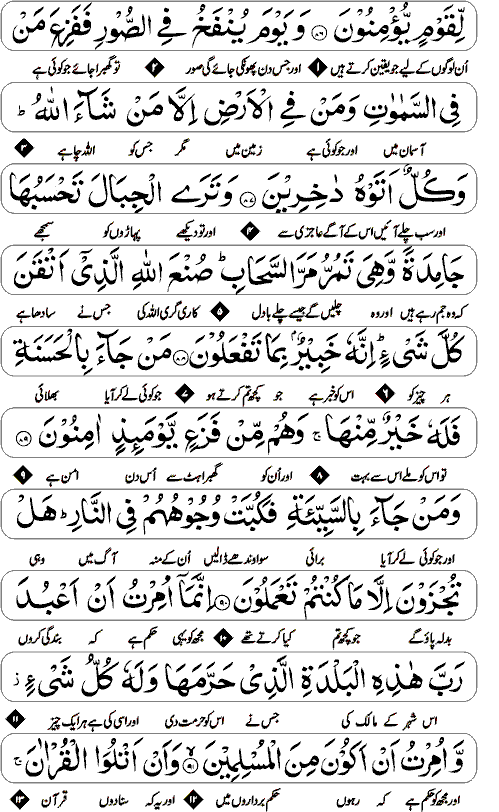 لِّقَوْمٍ يُّؤْمِنُوْنَ ۸۶ وَ يَوْمَ يُنْفَخُ فِى الصُّوْرِ فَفَزِعَ مَنْ
اُن لوگوں کے لیے جو یقین کرتے ہیں ۱ اور جس دن پھونکی جائے گی صور ۲ تو گھبرا جائے جو کوئی ہے
فِى السَّمٰوٰتِ وَمَنْ فِى الْاَرْضِ اِلَّا مَنْ شَآءَ اللّٰهُ ط
آسمان میں اور جو کوئی ہے زمین میں مگر جس کو اللہ چاہے ۳
وَكُلٌّ اَتَوْهُ دٰخِرِيْنَ ۸۷ وَتَرَى الْجِبَالَ تَحْسَبُهَا
اور سب چلے آئیں اس کے آگے عاجزی سے ۴ اور تو دیکھے پہاڑوں کو سمجھے
جَامِدَةً وَّهِىَ تَمُرُّ مَرَّ السَّحَابِ ط صُنْعَ اللّٰهِ الَّذِىْٓ اَتْقَنَ
کہ وہ جم رہے ہیں اور وہ چلیں گے جیسے چلے بادل ۵ کاری گری اللہ کی جس نے سادھا ہے
كُلَّ شَىْءٍ ط اِنَّهٗ خَبِيْرٌۢ بِمَا تَفْعَلُوْنَ ۸۸ مَنْ جَآءَ بِالْحَسَنَةِ
ہر چیز کو ۶ اس کو خبر ہے جو کچھ تم کرتے ہو ۷ جو کوئی لے کر آیا بھلائی
فَلَهٗ خَيْرٌ مِّنْهَا ج وَهُمْ مِّنْ فَزَعٍ يَّوْمَئِذٍ اٰمِنُوْنَ ۸۹
تو اس کو ملے اس سے بہت ۸ اور اُن کو گھبراہٹ سے اُس دن امن ہے ۹
وَمَنْ جَآءَ بِالسَّيِّئَةِ فَكُبَّتْ وُجُوْهُهُمْ فِى النَّارِ ط هَلْ
اور جو کوئی لے کر آیا برائی سو اوندھے ڈالیں اُن کے منہ آگ میں وہی
تُجْزَوْنَ اِلَّا مَا كُنْتُمْ تَعْمَلُوْنَ ۹۰ اِنَّمَآ اُمِرْتُ اَنْ اَعْبُدَ
بدلہ پاؤ گے جو کچھ تم کیا کرتے تھے ۱۰ مجھ کو یہی حکم ہے کہ بندگی کروں
رَبَّ هٰذِهِ الْبَلْدَةِ الَّذِىْ حَرَّمَهَا وَلَهٗ كُلُّ شَىْءٍ ز
اس شہر کے مالک کی جس نے اس کو حرمت دی اور اسی کی ہے ہر ایک چیز ۱۱
وَّاُمِرْتُ اَنْ اَكُوْنَ مِنَ الْمُسْلِمِيْنَ ۹۱ وَاَنْ اَتْلُوَا الْقُرْاٰنَ ج
اور مجھ کو حکم ہے کہ رہوں حکم برداروں میں ۱۲ اور یہ کہ سنا دوں قرآن ۱۳